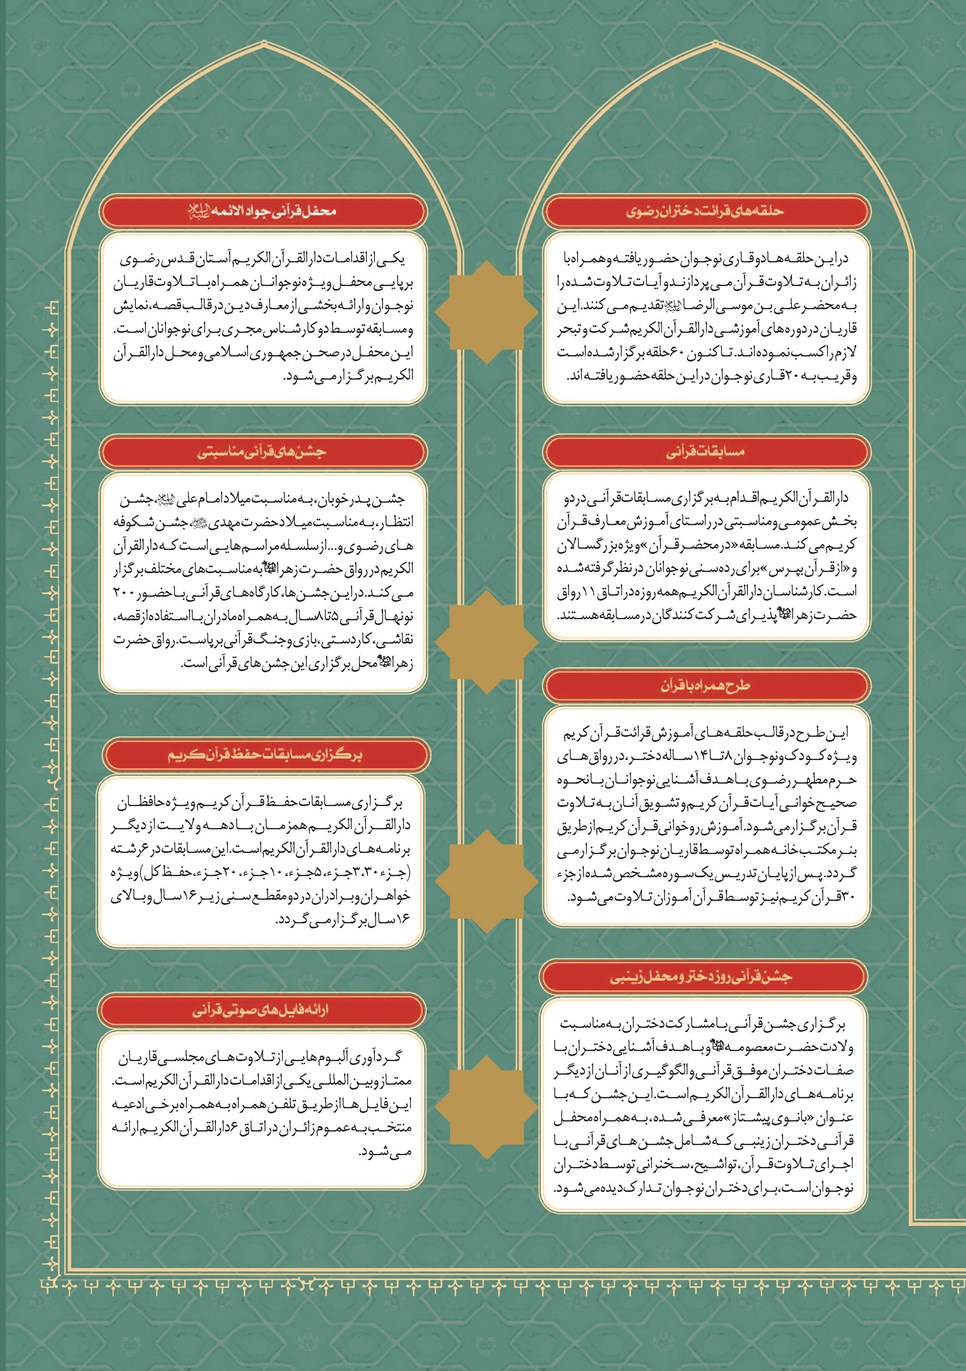 حلقه‌های قرائت دختران رضوی
در این حلقه ها دو قاری نوجوان حضور یافته و همراه با
زائران به تلاوت قرآن می پردازند و آیات تلاوت شده را
به محضر علی بن موسی الرضا علیه‌السلام تقدیم می کنند. این
قاریان در دوره های آموزشی دارالقرآن الکریم شرکت و تبحر
لازم را کسب نموده اند. تاکنون ۶۰ حلقه برگزار شده است
و قریب به ۲۰ قاری نوجوان در این حلقه حضور یافته اند.
مسابقات قرآنی
دارالقرآن الکریم اقدام به برگزاری مسابقات قرآنی در دو
بخش عمومی و مناسبتی در راستای آموزش معارف قرآن
کریم می کند. مسابقه «در محضر قرآن» ویژه بزرگسالان
و «از قرآن بپرس» برای رده سنی نوجوانان در نظر گرفته شده
است. کارشناسان دارالقرآن الکریم همه روزه در اتاق ۱۱ رواق
حضرت زهرا پذیرای شرکت کنندگان در مسابقه هستند.
طرح همراه با قرآن
این طرح در قالب حلقه های آموزش قرائت قرآن کریم
ویژه کودک و نوجوان ۸ تا ۱۴ ساله دختر، در رواق های
حرم مطهر رضوی با هدف آشنایی نوجوانان با نحوه
صحیح خوانی آیات قرآن کریم و تشویق آنان به تلاوت
قرآن برگزار می شود. آموزش روخوانی قرآن کریم از طریق
بنر مکتب خانه همراه توسط قاریان نوجوان برگزار می
گردد. پس از پایان تدریس یک سوره مشخص شده از جزء
۳۰ قرآن کریم نیز توسط قرآن آموزان تلاوت می شود.
جشن قرآنی روز دختر و محفل زینبی
برگزاری جشن قرآنی با مشارکت دختران به مناسبت
ولادت حضرت معصومه و با هدف آشنایی دختران با
صفات دختران موفق قرآنی و الگوگیری از آنان از دیگر
برنامه های دارالقرآن الکریم است. این جشن که با
عنوان «بانوی پیشتاز» معرفی شده، به همراه محفل
قرآنی دختران زینبی که شامل جشن های قرآنی با
اجرای تلاوت قرآن، تواشیح، سخنرانی توسط دختران
نوجوان است، برای دختران نوجوان تدارک دیده می شود.
محفل قرآنی جواد الائمه علیه‌السلام
یکی از اقدامات دارالقرآن الکریم آستان قدس رضوی
برپایی محفل ویژه نوجوانان همراه با تلاوت قاریان
نوجوان و ارائه بخشی از معارف دین در قالب قصه، نمایش
و مسابقه توسط دو کارشناس مجری برای نوجوانان است.
این محفل در صحن جمهوری اسلامی و محل دارالقرآن
الکریم برگزار می شود.
جشن‌های قرآنی مناسبتی
جشن پدر خوبان، به مناسبت میلاد امام علی علیه‌السلام، جشن
انتظار، به مناسبت میلاد حضرت مهدی، جشن شکوفه
های رضوی و... از سلسله مراسم هایی است که دارالقرآن
الکریم در رواق حضرت زهرا به مناسبت های مختلف برگزار
می کند. در این جشن ها، کارگاه های قرآنی با حضور ۲۰۰
نونهال قرآنی ۵ تا ۸ سال به همراه مادران با استفاده از قصه،
نقاشی، کاردستی، بازی و جنگ قرآنی برپاست. رواق حضرت
زهرا محل برگزاری این جشن های قرآنی است.
برگزاری مسابقات حفظ قرآن کریم
برگزاری مسابقات حفظ قرآن کریم ویژه حافظان
دارالقرآن الکریم همزمان با دهه ولایت از دیگر
برنامه های دارالقرآن الکریم است. این مسابقات در ۶ رشته
(جزء ۳۰، ۳ جزء، ۵ جزء، ۱۰ جزء، ۲۰ جزء، حفظ کل) ویژه
خواهران و برادران در دو مقطع سنی زیر ۱۶ سال و بالای
۱۶ سال برگزار می گردد.
ارائه فایل های صوتی قرآنی
گردآوری آلبوم هایی از تلاوت های مجلسی قاریان
ممتاز و بین المللی یکی از اقدامات دارالقرآن الکریم است.
این فایل ها از طریق تلفن همراه به همراه برخی ادعیه
منتخب به عموم زائران در اتاق ۶ دارالقرآن الکریم ارائه
می شود.